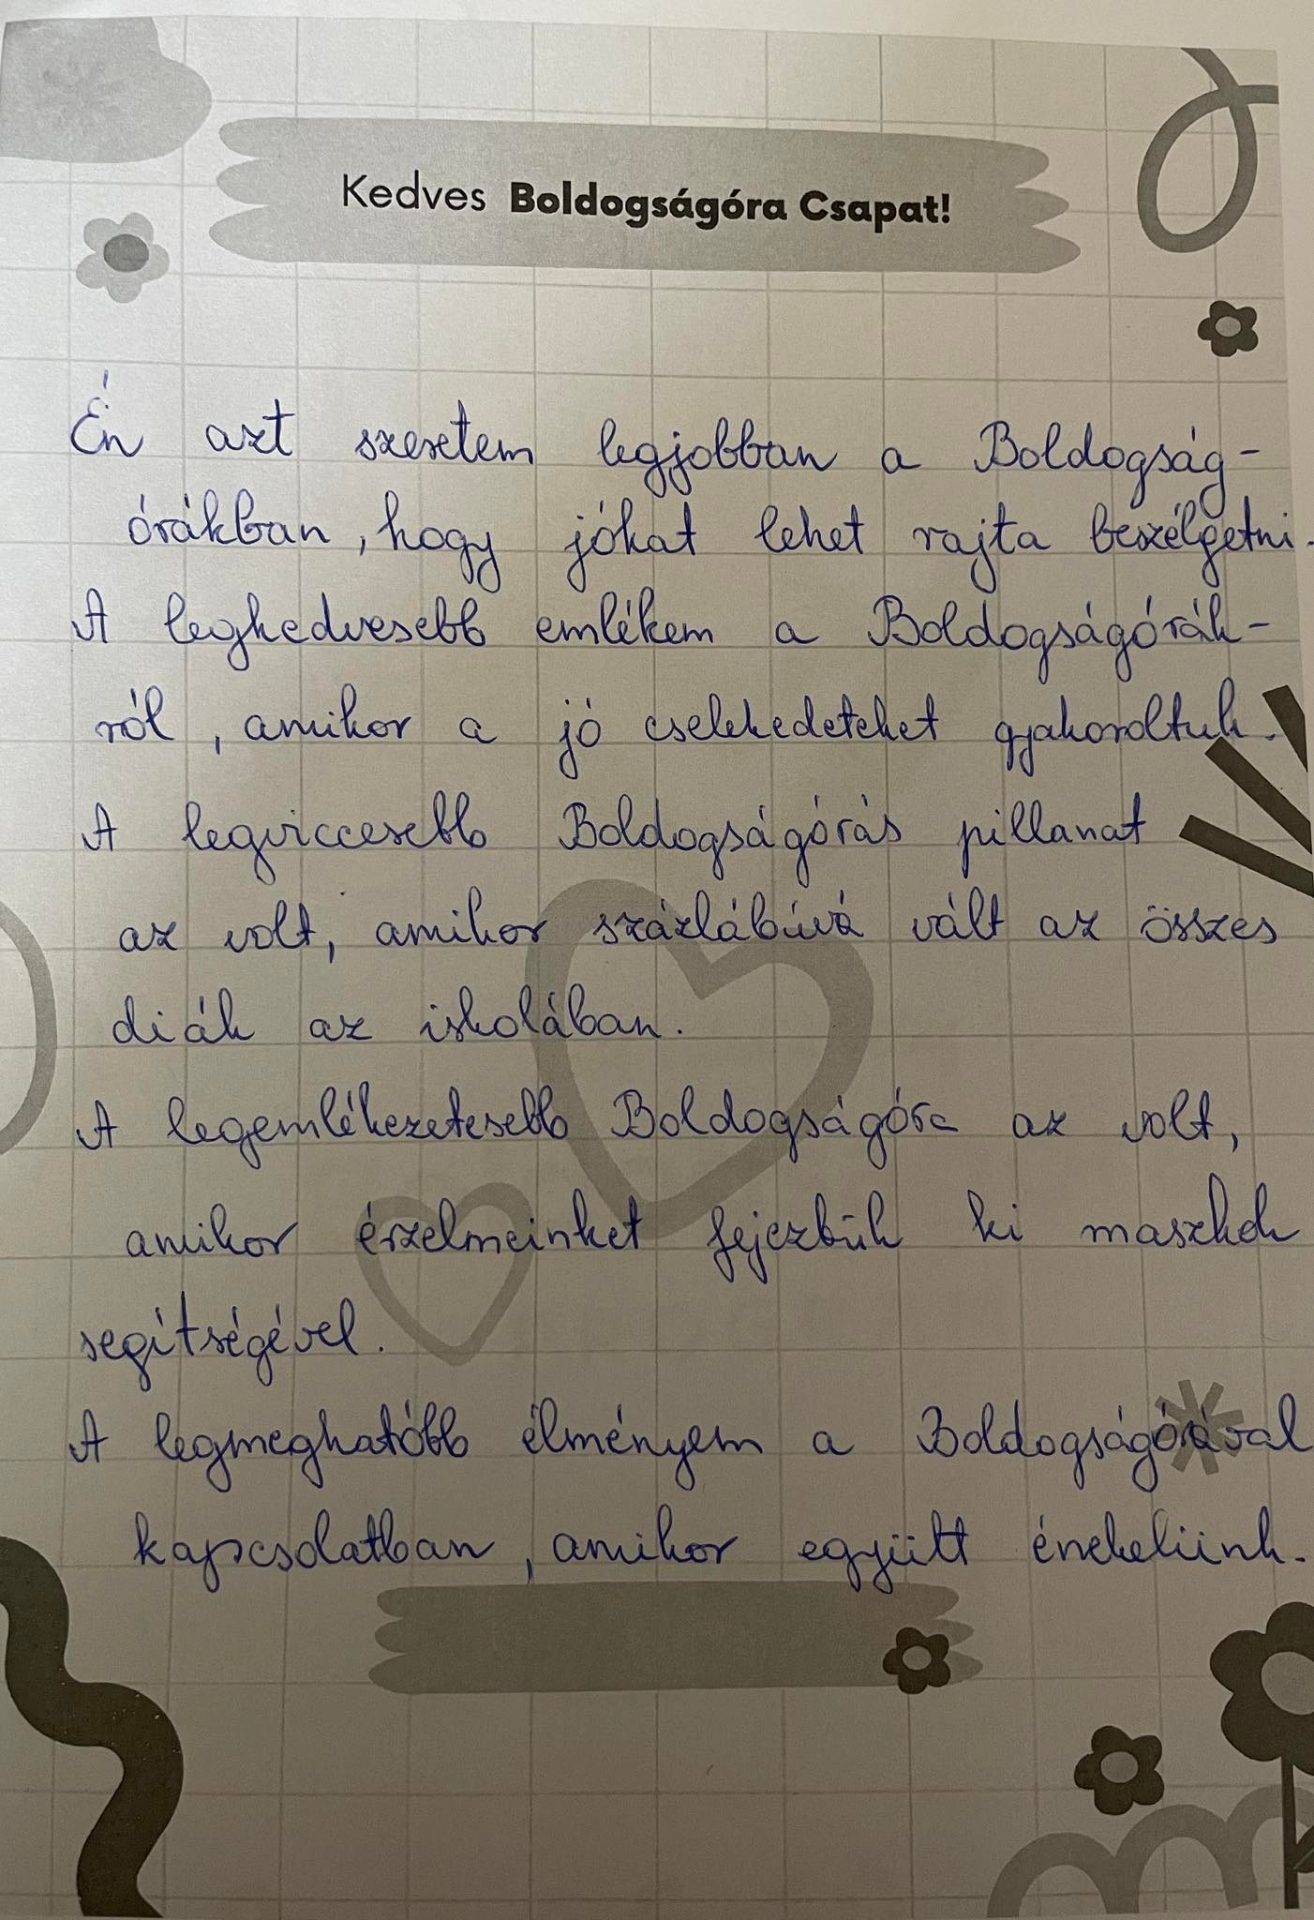 Kedves Boldogságóra Csapat!
Én azt szeretem legjobban a Boldogság-
órákban, hogy jókat lehet rajta beszélgetni.
A legkedvesebb emlékem a Boldogságórák-
ról, amikor a jó cselekedeteket gyakoroltuk.
A legviccesebb Boldogságórás pillanat
az volt, amikor százlábúvá vált az összes
diák az iskolában.
A legemlékezetesebb Boldogságóra az volt,
amikor érzelmeinket fejeztük ki maszkok
segítségével.
A legmeghatóbb élményem a Boldogságórával
kapcsolatban, amikor együtt énekelünk.